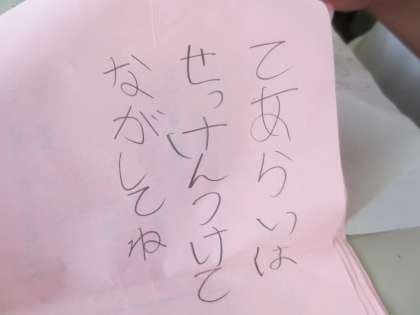 てあらいは
せっけんつけて
ながしてね